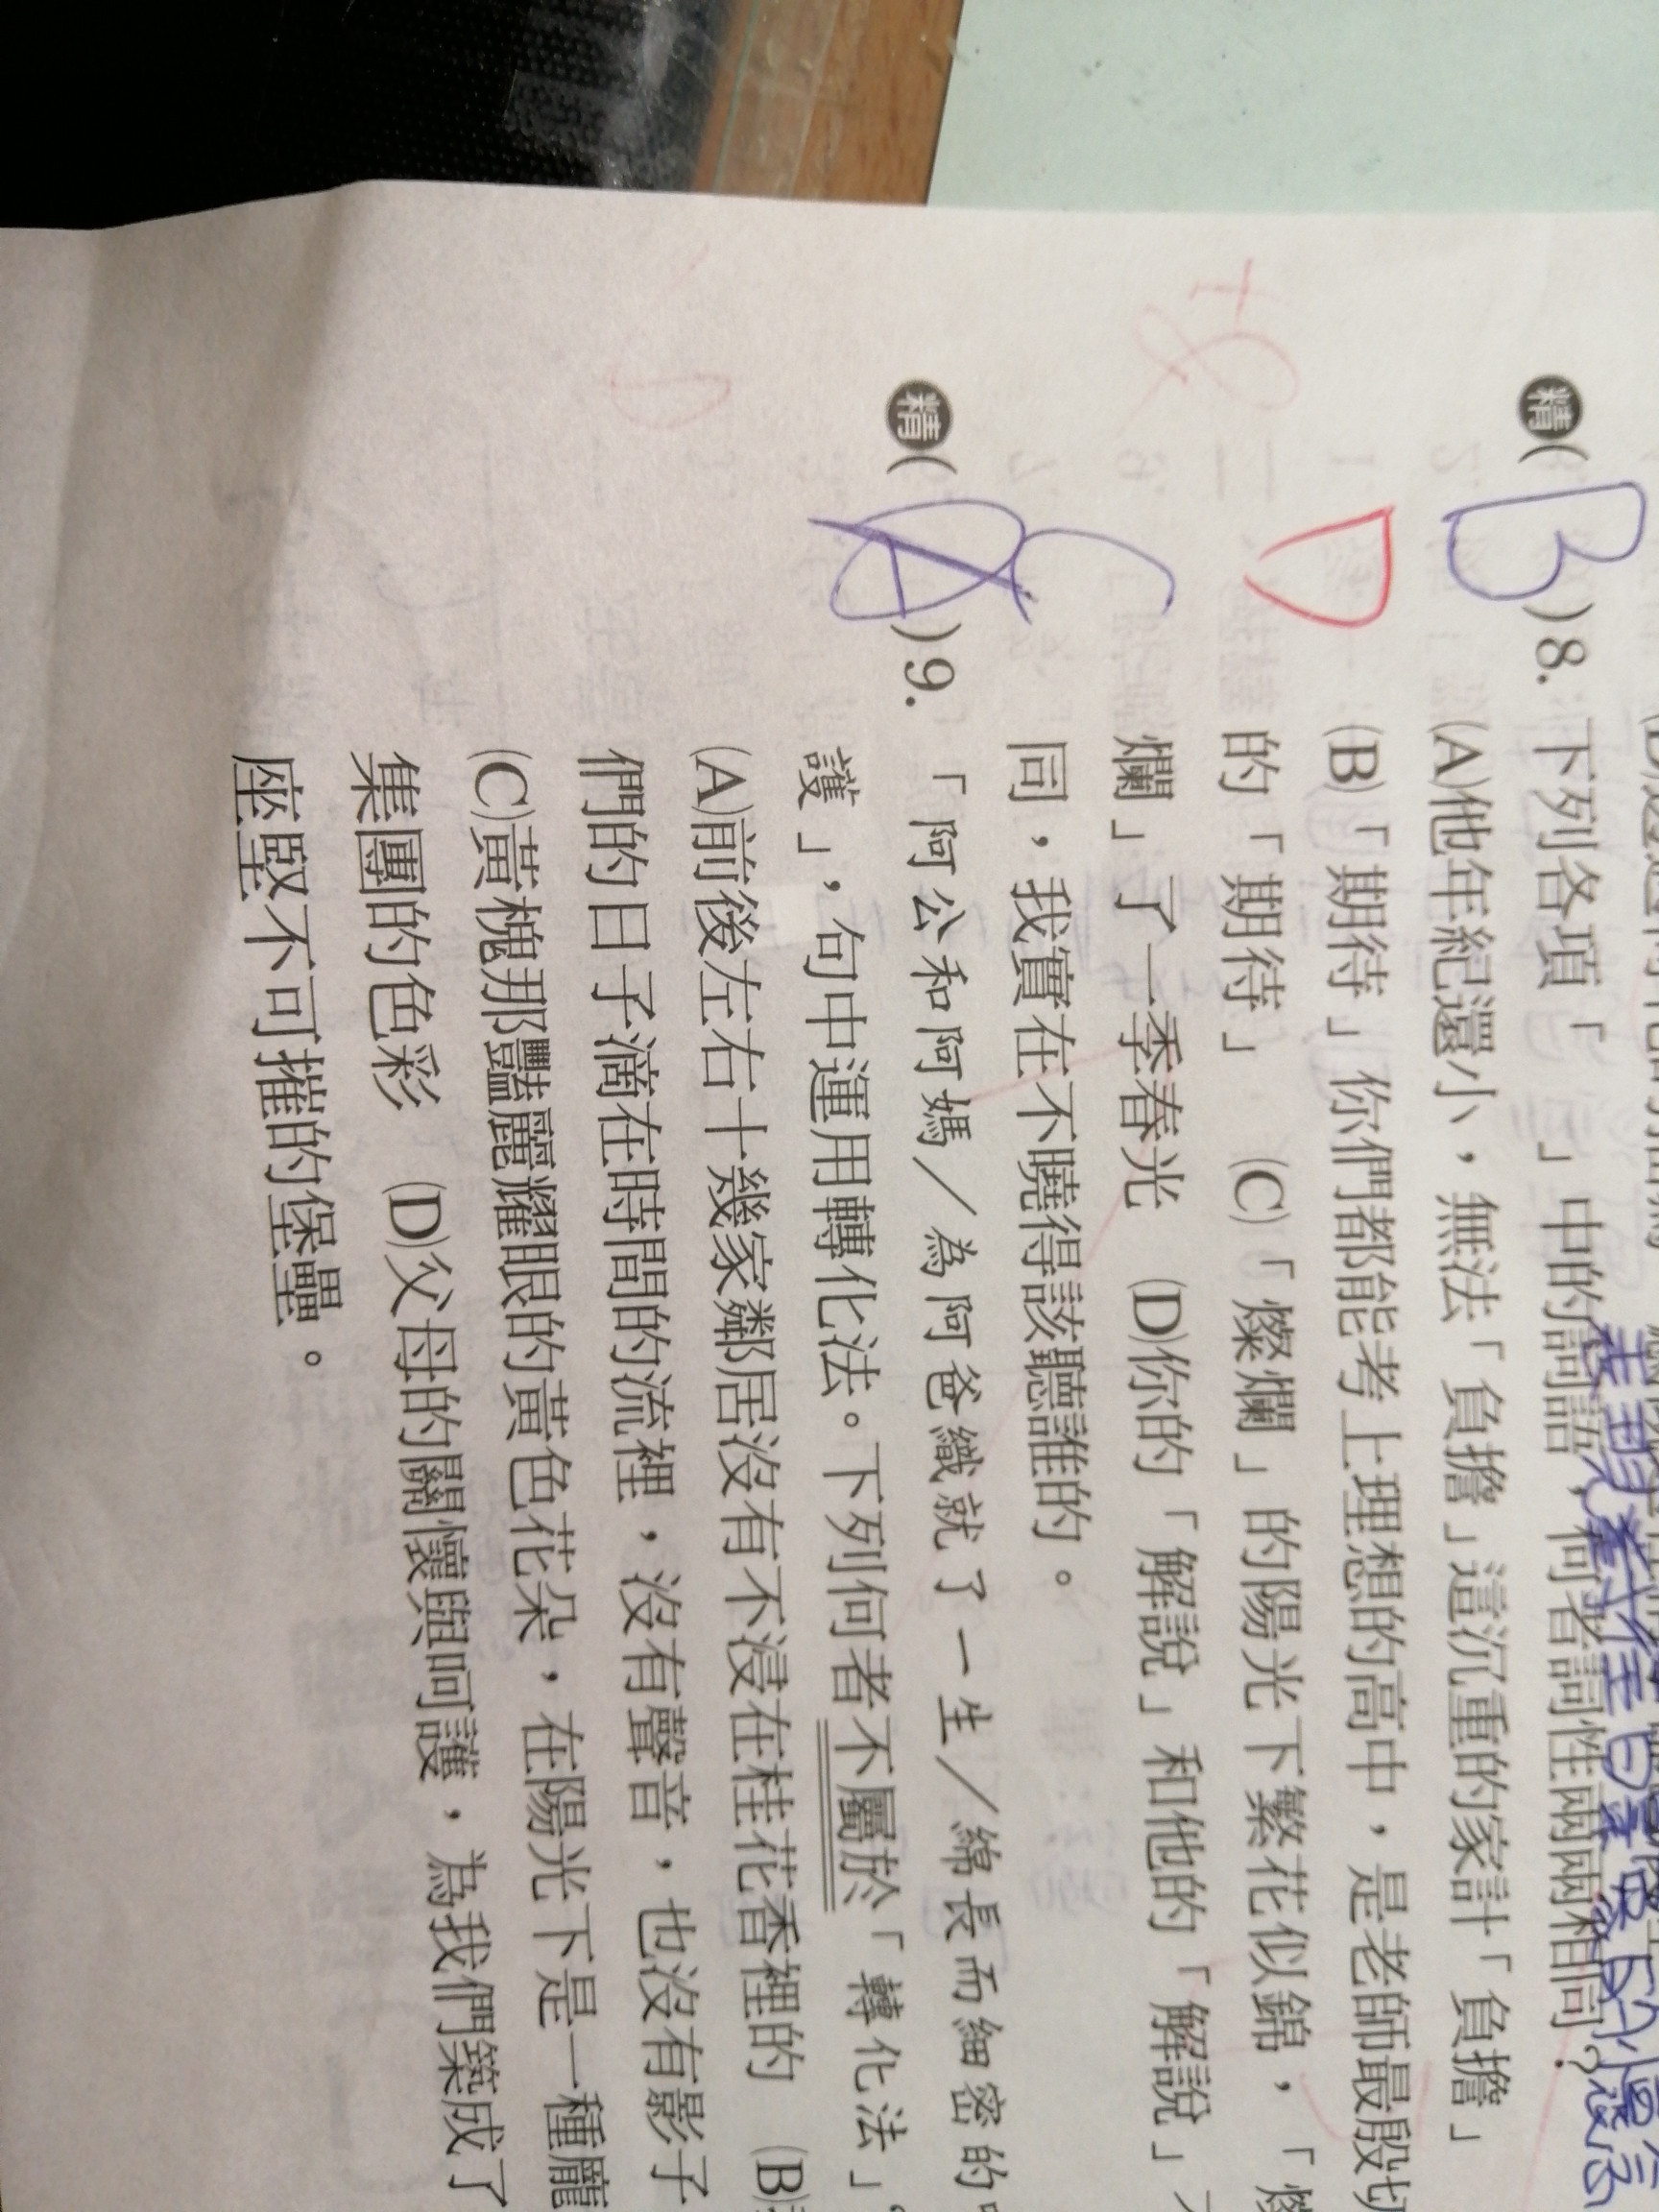 精( B )8. 下列各項「　」中的詞語，何者詞性兩兩相同？
D
(A)他年紀還小，無法「負擔」這沉重的家計「負擔」
(B)「期待」你們都能考上理想的高中，是老師最殷切
的「期待」　(C)「燦爛」的陽光下繁花似錦，「
爛」了一季春光　(D)你的「解說」和他的「解說」
同，我實在不曉得該聽誰的。
精( C )9. 「阿公和阿媽／為阿爸織就了一生／綿長而細密的
護」，句中運用轉化法。下列何者不屬於「轉化法」
(A)前後左右十幾家鄰居沒有不浸在桂花香裡的　(B)
們的日子滴在時間的流裡，沒有聲音，也沒有影子
(C)黃槐那豔麗耀眼的黃色花朵，在陽光下是一種龐
集團的色彩　(D)父母的關懷與呵護，為我們築成了
座堅不可摧的堡壘。